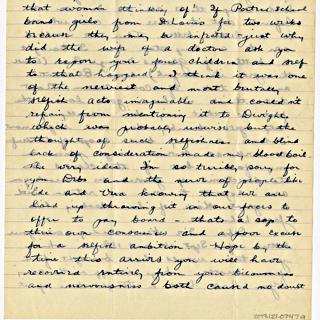 that woman thinking of? If Poetrie School
bound girls from St Louis for two weeks
because they may be exposed just why
did the wife of a doctor ask you
to expose your four children and self
to that haggard. I think it was one
of the nerviest and most brutally
selfish acts imaginable and couldn't
refrain from mentioning it to Dwight
which was probably unwise but the
thought of such selfishness and blind
lack of consideration made my blood boil.
The very idea. Im so terribly sorry for
you Debs - the nerve of people like
Ede and Vra knowing that we are
hard up throwing it in our faces to
offer to pay board - thats a sop to
their own consciences and a poor excuse
for a selfish ambition - Hope by the
time this arrives you will have
recovered entirely from your
and nervousness both caused no doubt